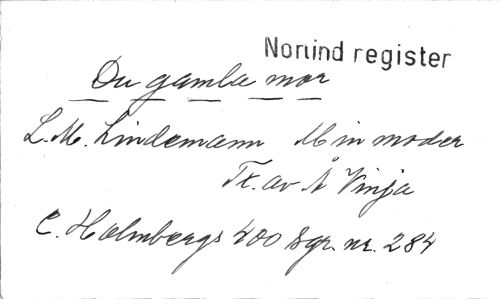 Nortind register
Du gamla mor
L. M. Lindemann Min moder
Tx. av Å Vinja
C. Holmbergs 400 sgr. nr. 284